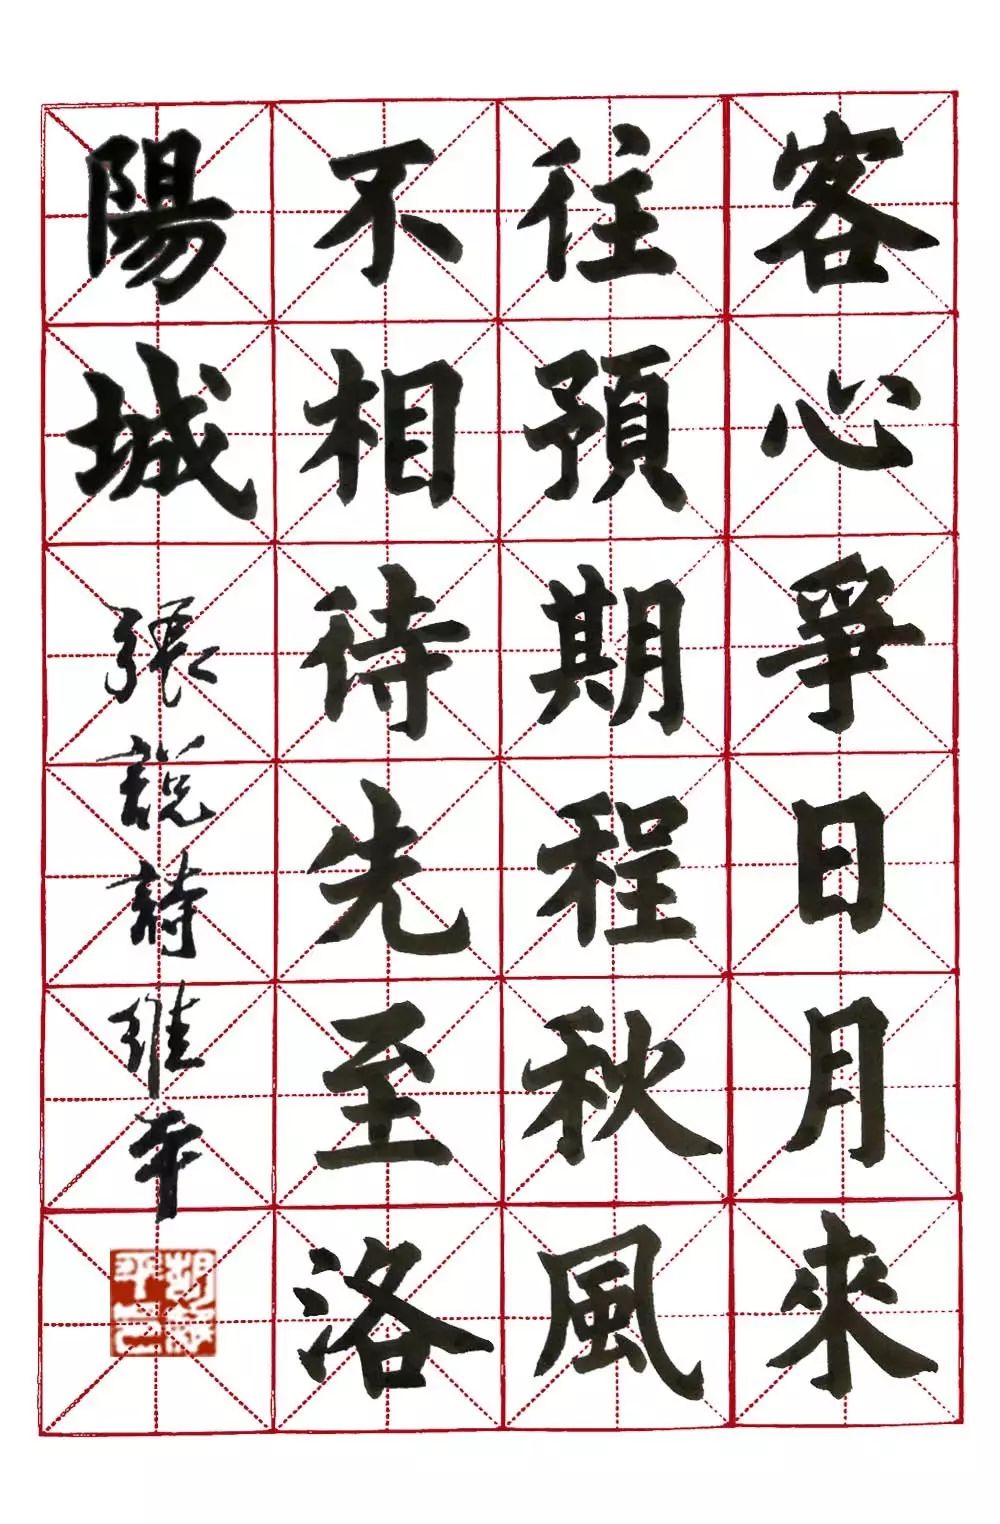 客心爭日月來
往預期程秋風
不相待先至洛
陽城
張說詩維平
胡維平印